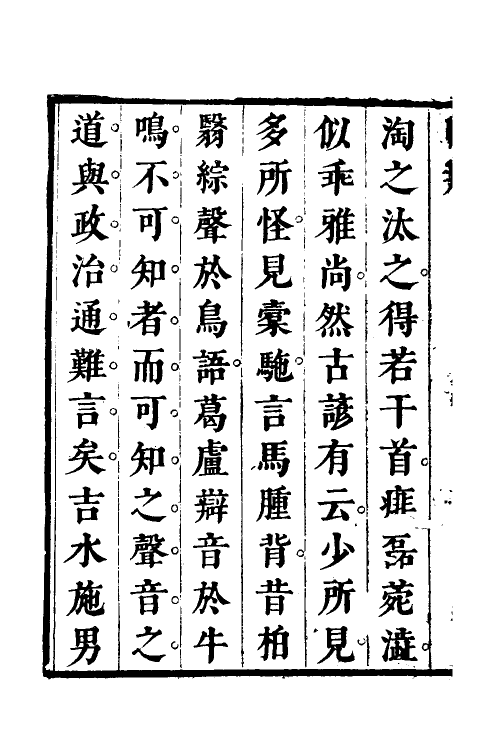 淘之汰之。得若干首。痱磊菀澁。
似乖雅尚。然古諺有云。少所見。
多所怪。見槖駞。言馬腫背。昔柏
翳綜聲於鳥語。葛盧辯音於牛
鳴。不。可。知。者。而。可。知。之。聲。音。之。
道。與。政。治。通。難。言。矣。吉水施男